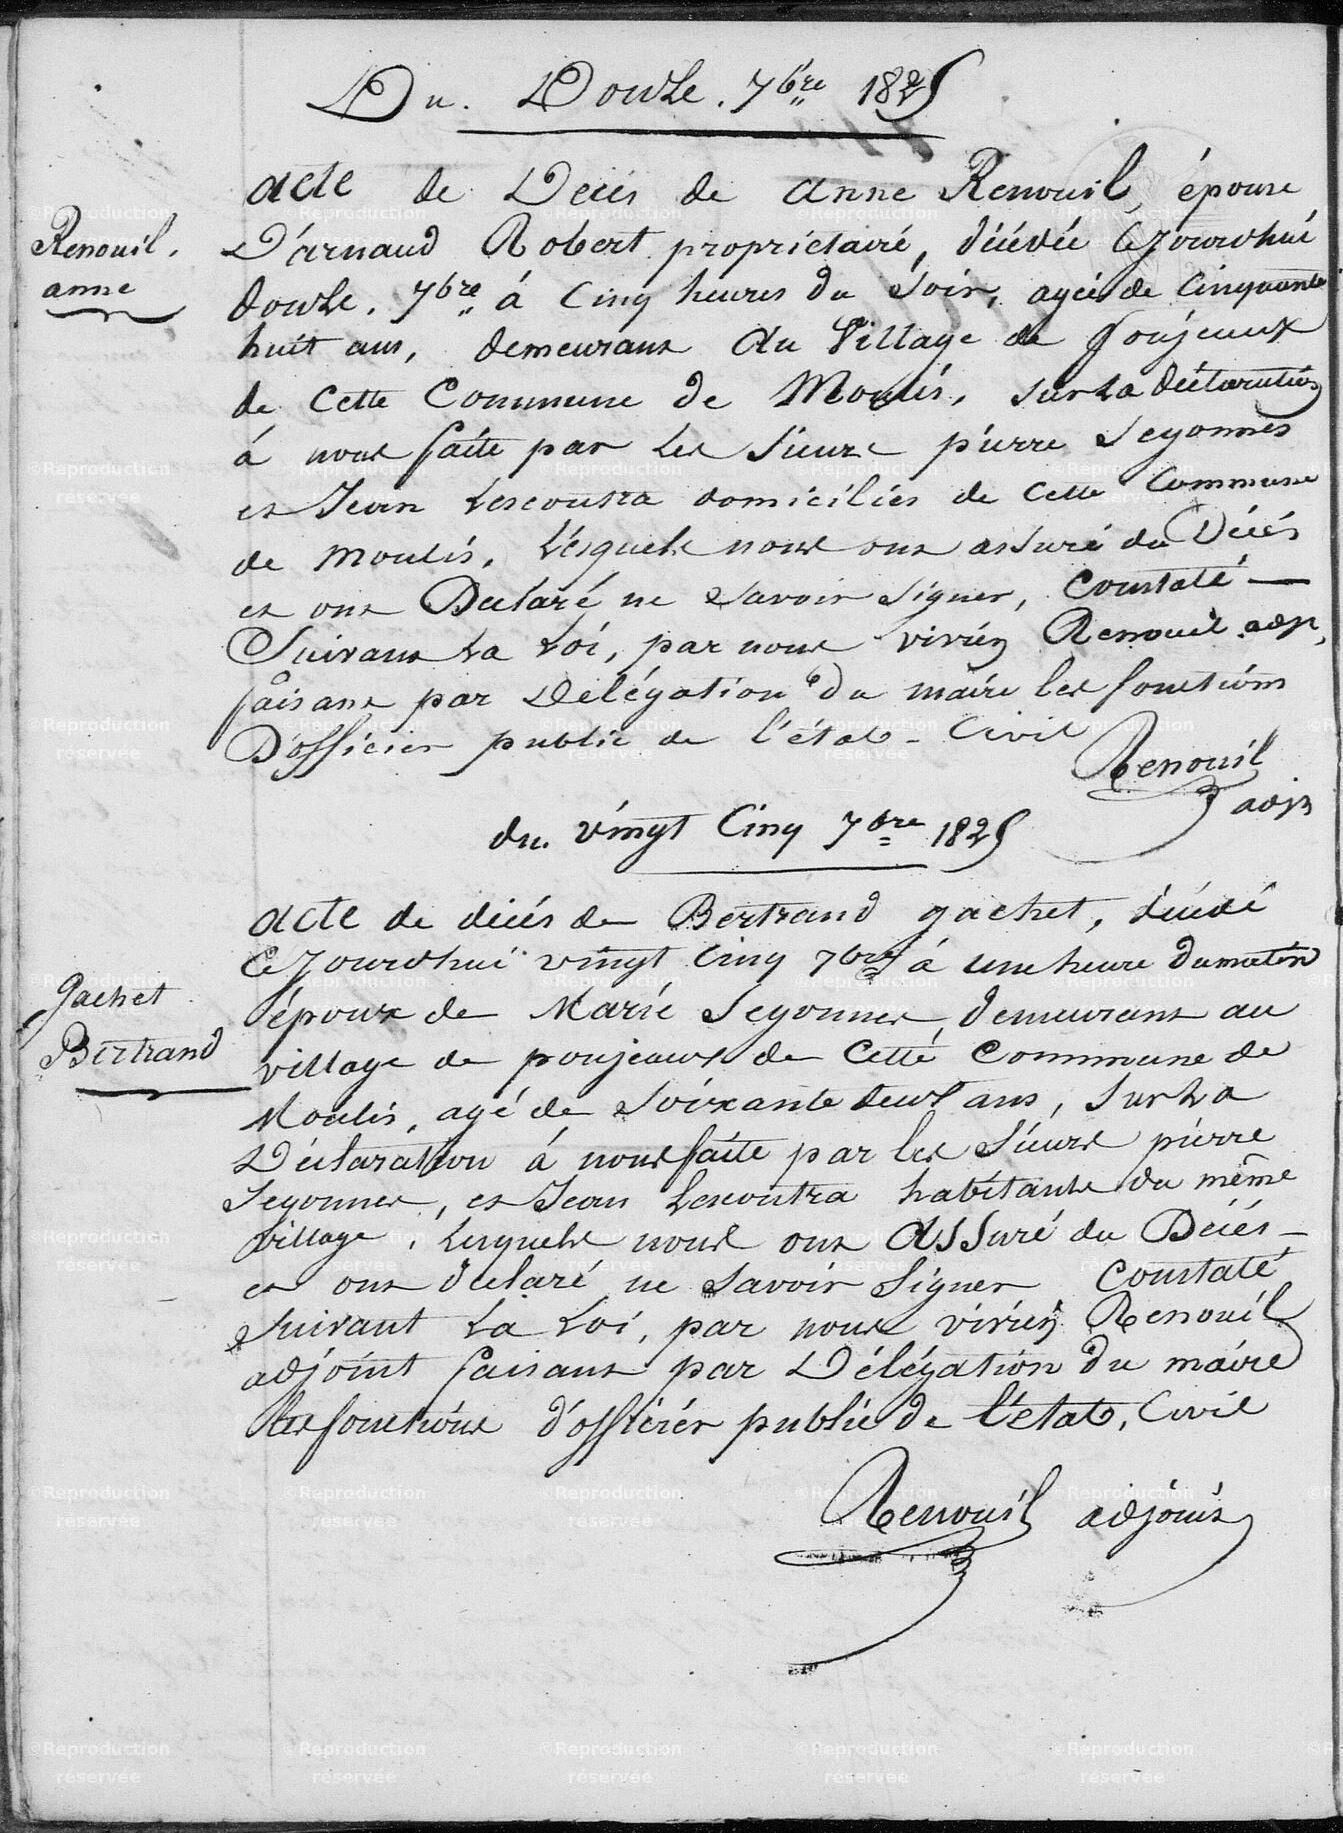 Du. Douze. 7bre 1825
Renouil.
anne
acte de Décés de anne Renouil, épouse
D'arnaud Robert propriétaire, décédée Cejourdhui
douze. 7bre á Cinq heures du Soir, agée de Cinquante
huit ans, demeurant du Village de Poujeaux
de Cette Commune de Moulis, sur la déclaration
á nous faite par Les Sieurs pierre Seyonnes
et Jean Lescoutra domiciliés de Cette Commune
de Moulis, Lesquels nous ont assuré du Décés
et ont Declaré ne Savoir Signer, Constaté
Suivant La Loi, par nous vivien Renouil adjt,
faisant par Délégation du maire les fonctions
D'officier public de l'état-Civil
Renouil
adjt
du. vingt Cinq 7bre 1825
Gachet
Bertrand
acte de décés de Bertrand gachet, décédé
Cejourdhui vingt Cinq 7bre á une heure du matin
époux de Marie Seyonnes, demeurant au
village de poujeaux de Cette Commune de
Moulis, agé de Soixante deux ans, Sur La
Déclaration á nous faite par les Sieurs pierre
Seyonnes, et Jean Lescoutra habitants du même
village, Lesquels nous ont assuré du Décés
et ont declaré ne Savoir Signer Constaté
Suivant La Loi, par nous vivien Renouil
adjoint faisant par Délégation du maire
les fonctions d'officier public de l'état, Civil
Renouil adjoint
©Reproduction réservée